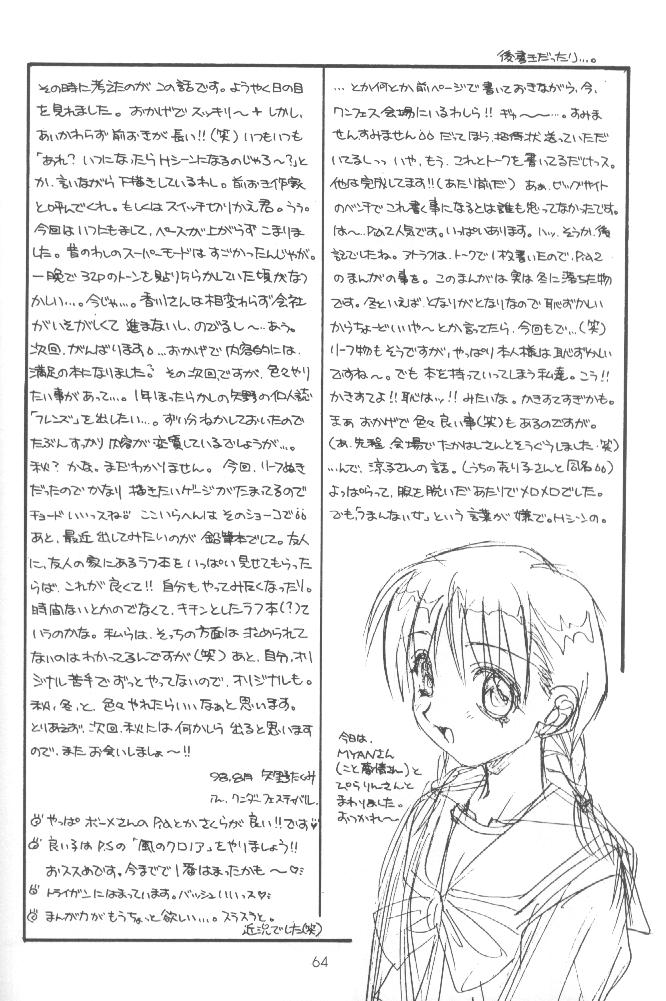 後書きだったり…。
…とか何とか、前ページで書いておきながら、今、
ワンフェス会場にいるわしら!! ギゅ〜〜…。すみま
せんすみません だってほら、招待状送っていただ
いてるしっっ いや、もう、これとトークを書いてるだけっス。
他は完成してます!!(あたり前だ) あぁ、ビッグサイト
のベンチでこれ書く事になるとは誰も思ってなかったです。
は〜、Pia2人気です。いっぱいあります。ハッ、そうか、後
記でしたね。アトラフは、トークで1枚書いたので、Pia2
のまんがの事を。このまんがは実は冬に落ちた物
です。冬といえば、となりがとなりなので恥ずかしい
からちょーどいいや〜とか言ってたら、今回もで…(笑)
リーフ物もそうですが、やっぱり本人様は恥ずかしい
ですね〜。でも本を持っていってしまう私達。こう!!
かきすてよ!! 恥はッ!! みたいな。かきすてすぎかも。
まぁ おかげで色々良い事(笑)もあるのですが。
(あ、先程、会場でたかはしさんとそうぐうしました、笑)
…んで、涼子さんの話。(うちの売り子さんと同名)
よっぱらって、服を脱いだあたりでメロメロでした。
でも「つまんない女」という言葉が嫌で。Hシーンの。
その時に考えたのがこの話です。ようやく日の目
を見れました。おかげでスッキリ〜+ しかし、
あいかわらず前おきが長い!!(笑) いつもいつも
「あれ? いつになったらHシーンになるのじゃろ〜?」と
か、言いながら下描きしているわし。前おき作家
と呼んでくれ。もしくはスイッチきりかえ君。うぅ。
今回はいつにもまして、ペースが上がらずこまりま
した。昔のわしのスーパーモードはすごかったんじゃが。
一晩で32Pのトーンを貼りちらかしていた頃がなつ
かしい…。今じゃ…。香川さんは相変わらず会社
がいそがしくて進まないし、のびるし〜、あぅ。
次回、がんばります。…おかげで内容的には、
満足の本になりました? その次回ですが、色々やり
たい事があって…。1年ほったらかしの矢野の個人誌
「フレンズ」を出したい…。ずい分ねかしておいたので
たぶんすっかり内容が変質しているでしょうが…。
秋?かな。まだわかりません。今回、リーフぬき
だったのでかなり描きたいゲージがたまってるので
チョードいいっスね ここいらへんは そのショーコで
あと、最近出してみたいのが鉛筆本でして。友人
に、友人の家にあるラフ本をいっぱい見せてもらった
らば、これが良くて!! 自分もやってみたくなったり。
時間ないとかのでなくて、キチンとしたラフ本(?)て
いうのかな。私らは、そっちの方面は求められて
ないのはわかってるんですが(笑)あと、自分、オリ
ジナル苦手でずっとやってないので、オリジナルも。
秋、冬、と、色々やれたらいいなぁと思います。
とりあえず、次回、秋には何かしら出ると思います
ので、またお会いしましょ〜!!
98.8月 矢野たくみ
in、ワンダーフェスティバル。
やっぱ ボーメさんのPiaとかさくらが良い!!です♥
良いるはP.Sの「風のクロノア」をやりましょう!!
おススメです。今までで1番はまったかも〜♡
トライガンにはまっています。バッシュいいっス♡
まんが力がもうちょっと欲しい…。スラスラと。
近況でした(笑)
今日は、
MYANさん
とぴらりんさんと
まわりました。
おつかれ〜
64